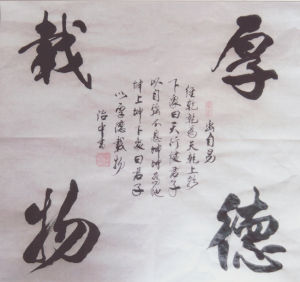 厚德
载物
出自易
经乾乾为天乾上乾
下象曰天行健君子
以自强不息坤坤为地
坤上坤下象曰君子
以厚德载物